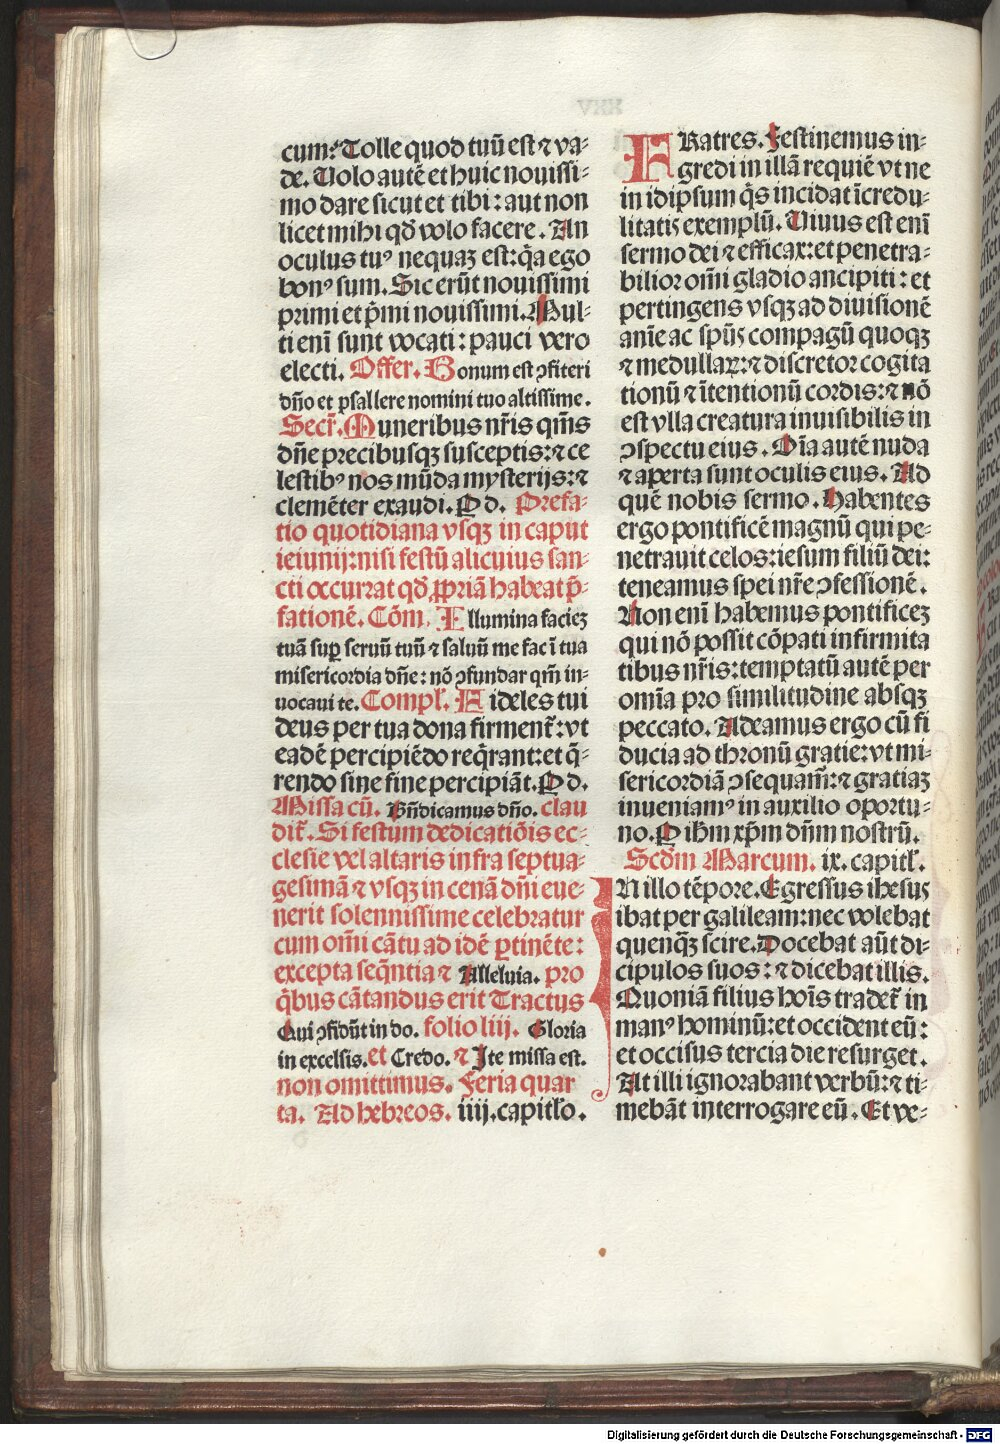 cum? Tolle quod tuū est ⁊ va-
de. Uolo autē et huic nouissi-
mo dare sicut et tibi: aut non
licet mihi qđ volo facere. An
oculus tuꝰ nequaꝫ est: q̄a ego
bonꝰ sum. Sic erūt nouissimi
primi et p̄mi nouissimi. Mul-
ti enī sunt vocati: pauci vero
electi. Offer. Bonum est ꝯfiteri
dn̄o et psallere nomini tuo altissime.
Secr̄. Muneribus nr̄is qm̄s
dn̄e precibusqꝫ susceptis: ⁊ ce
lestibꝰ nos mūda mysterijs: ⁊
clemēter exaudi. P d. Prefa-
tio quotidiana vsqꝫ in caput
ieiunij: nisi festū alicuius san-
cti occurrat qđ ꝓpriā habeat p̄-
fationē. Cōm. Illumina facieꝫ
tuā sup̲ seruū tuū ⁊ saluū me fac ī tua
misericordia dn̄e: nō ꝯfundar qm̄ in-
uocaui te. Compl̄. Fideles tui
deus per tua dona firment̄: vt
eadē percipiēdo req̄rant: et q̄-
rendo sine fine percipiāt. P d.
Missa cū. Bn̄dicamus dn̄o. clau
dit̄. Si festum dedicatiōis ec-
clesie vel altaris infra septua-
gesimā ⁊ vsqꝫ in cenā dn̄i eue-
nerit solennissime celebratur
cum om̄i cātu ad idē ꝑtinēte:
excepta seq̄ntia ⁊ Alleluia. pro
q̄bus cātandus erit Tractus
Qui ꝯfidūt in do. folio liij. Gloria
in excelsis. et Credo. ⁊ Ite missa est.
non omittimus. Feria quar
ta. Ad hebreos. iiij. capitl̄o.
FRatres. Festinemus in-
gredi in illā requiē vt ne
in idipsum q̄s incidat īcredu-
litatis exemplū. Uiuus est enī
sermo dei ⁊ efficax: et penetra-
bilior om̄i gladio ancipiti: et
pertingens vsqꝫ ad diuisionē
anīe ac spūs compagū quoqꝫ
⁊ medullaꝝ: ⁊ discretor cogita
tionū ⁊ ītentionū cordis: ⁊ nō
est vlla creatura inuisibilis in
ꝯspectu eius. Oīa autē nuda
⁊ aperta sunt oculis eius. Ad
quē nobis sermo. Habentes
ergo pontificē magnū qui pe-
netrauit celos: iesum filiū dei:
teneamus spei nr̄e ꝯfessionē.
Non enī habemus pontificeꝫ
qui nō possit cōpati infirmita
tibus nr̄is: temptatū autē per
omīa pro similitudine absqꝫ
peccato. Adeamus ergo cū fi
ducia ad thronū gratie: vt mi-
sericordiā ꝯsequam̄: ⁊ gratiaꝫ
inueniamꝰ in auxilio oportu-
no. P ihm̄ xp̄m dn̄m nostrū.
Scd̄m Marcum. ix. capitl̄.
IN illo tēpore. Egressus ihesus
ibat per galileam: nec volebat
quenq̄ꝫ scire. Docebat aūt di-
cipulos suos: ⁊ dicebat illis.
Quoniā filius hoīs tradet̄ in
manꝰ hominū: et occident eū:
et occisus tercia die resurget.
At illi ignorabant verbū: ⁊ ti-
mebāt interrogare eū. Et ve-
Digitalisierung gefördert durch die Deutsche Forschungsgemeinschaft - DFG